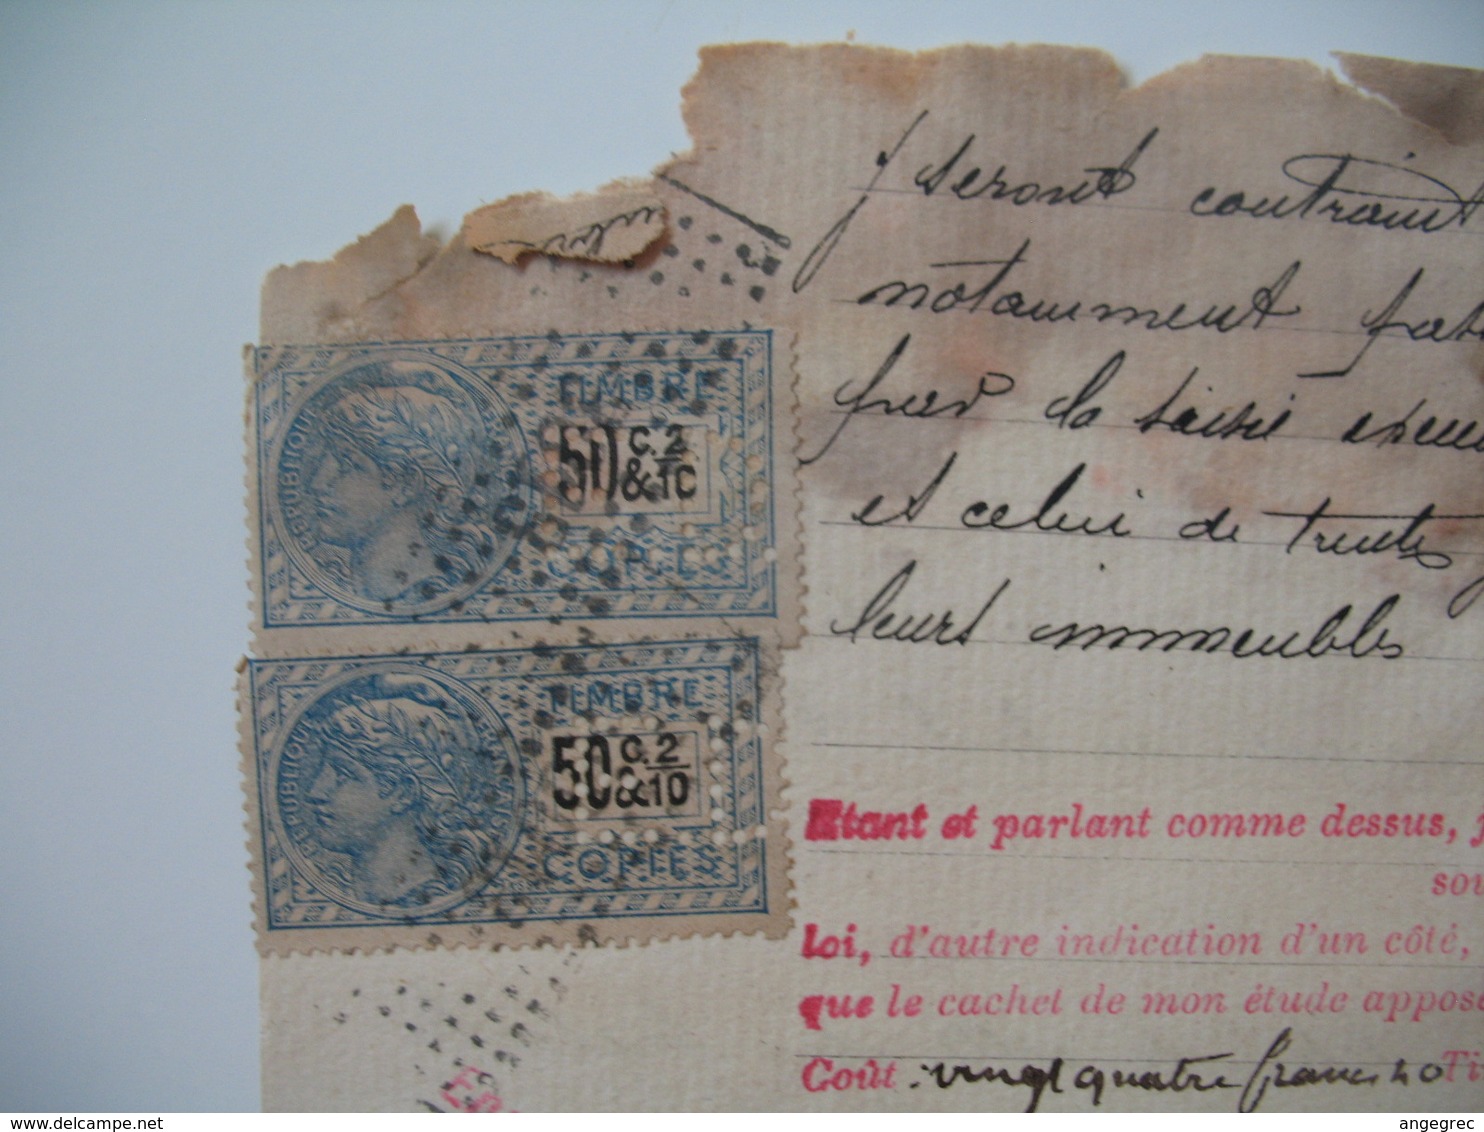 seront contraint
notamment
la saisie
et celui de trente
leurs immeubles
RÉPUBLIQUE FRANÇAISE
TIMBRE
50 C. 2
& 10
COPIES
RÉPUBLIQUE FRANÇAISE
TIMBRE
50 C. 2
& 10
COPIES
Etant et parlant comme dessus,
sou
Loi, d'autre indication d'un côté,
que le cachet de mon étude appos
Coût : vingt quatre francs 40 Ti
delcampe.net
angegrec